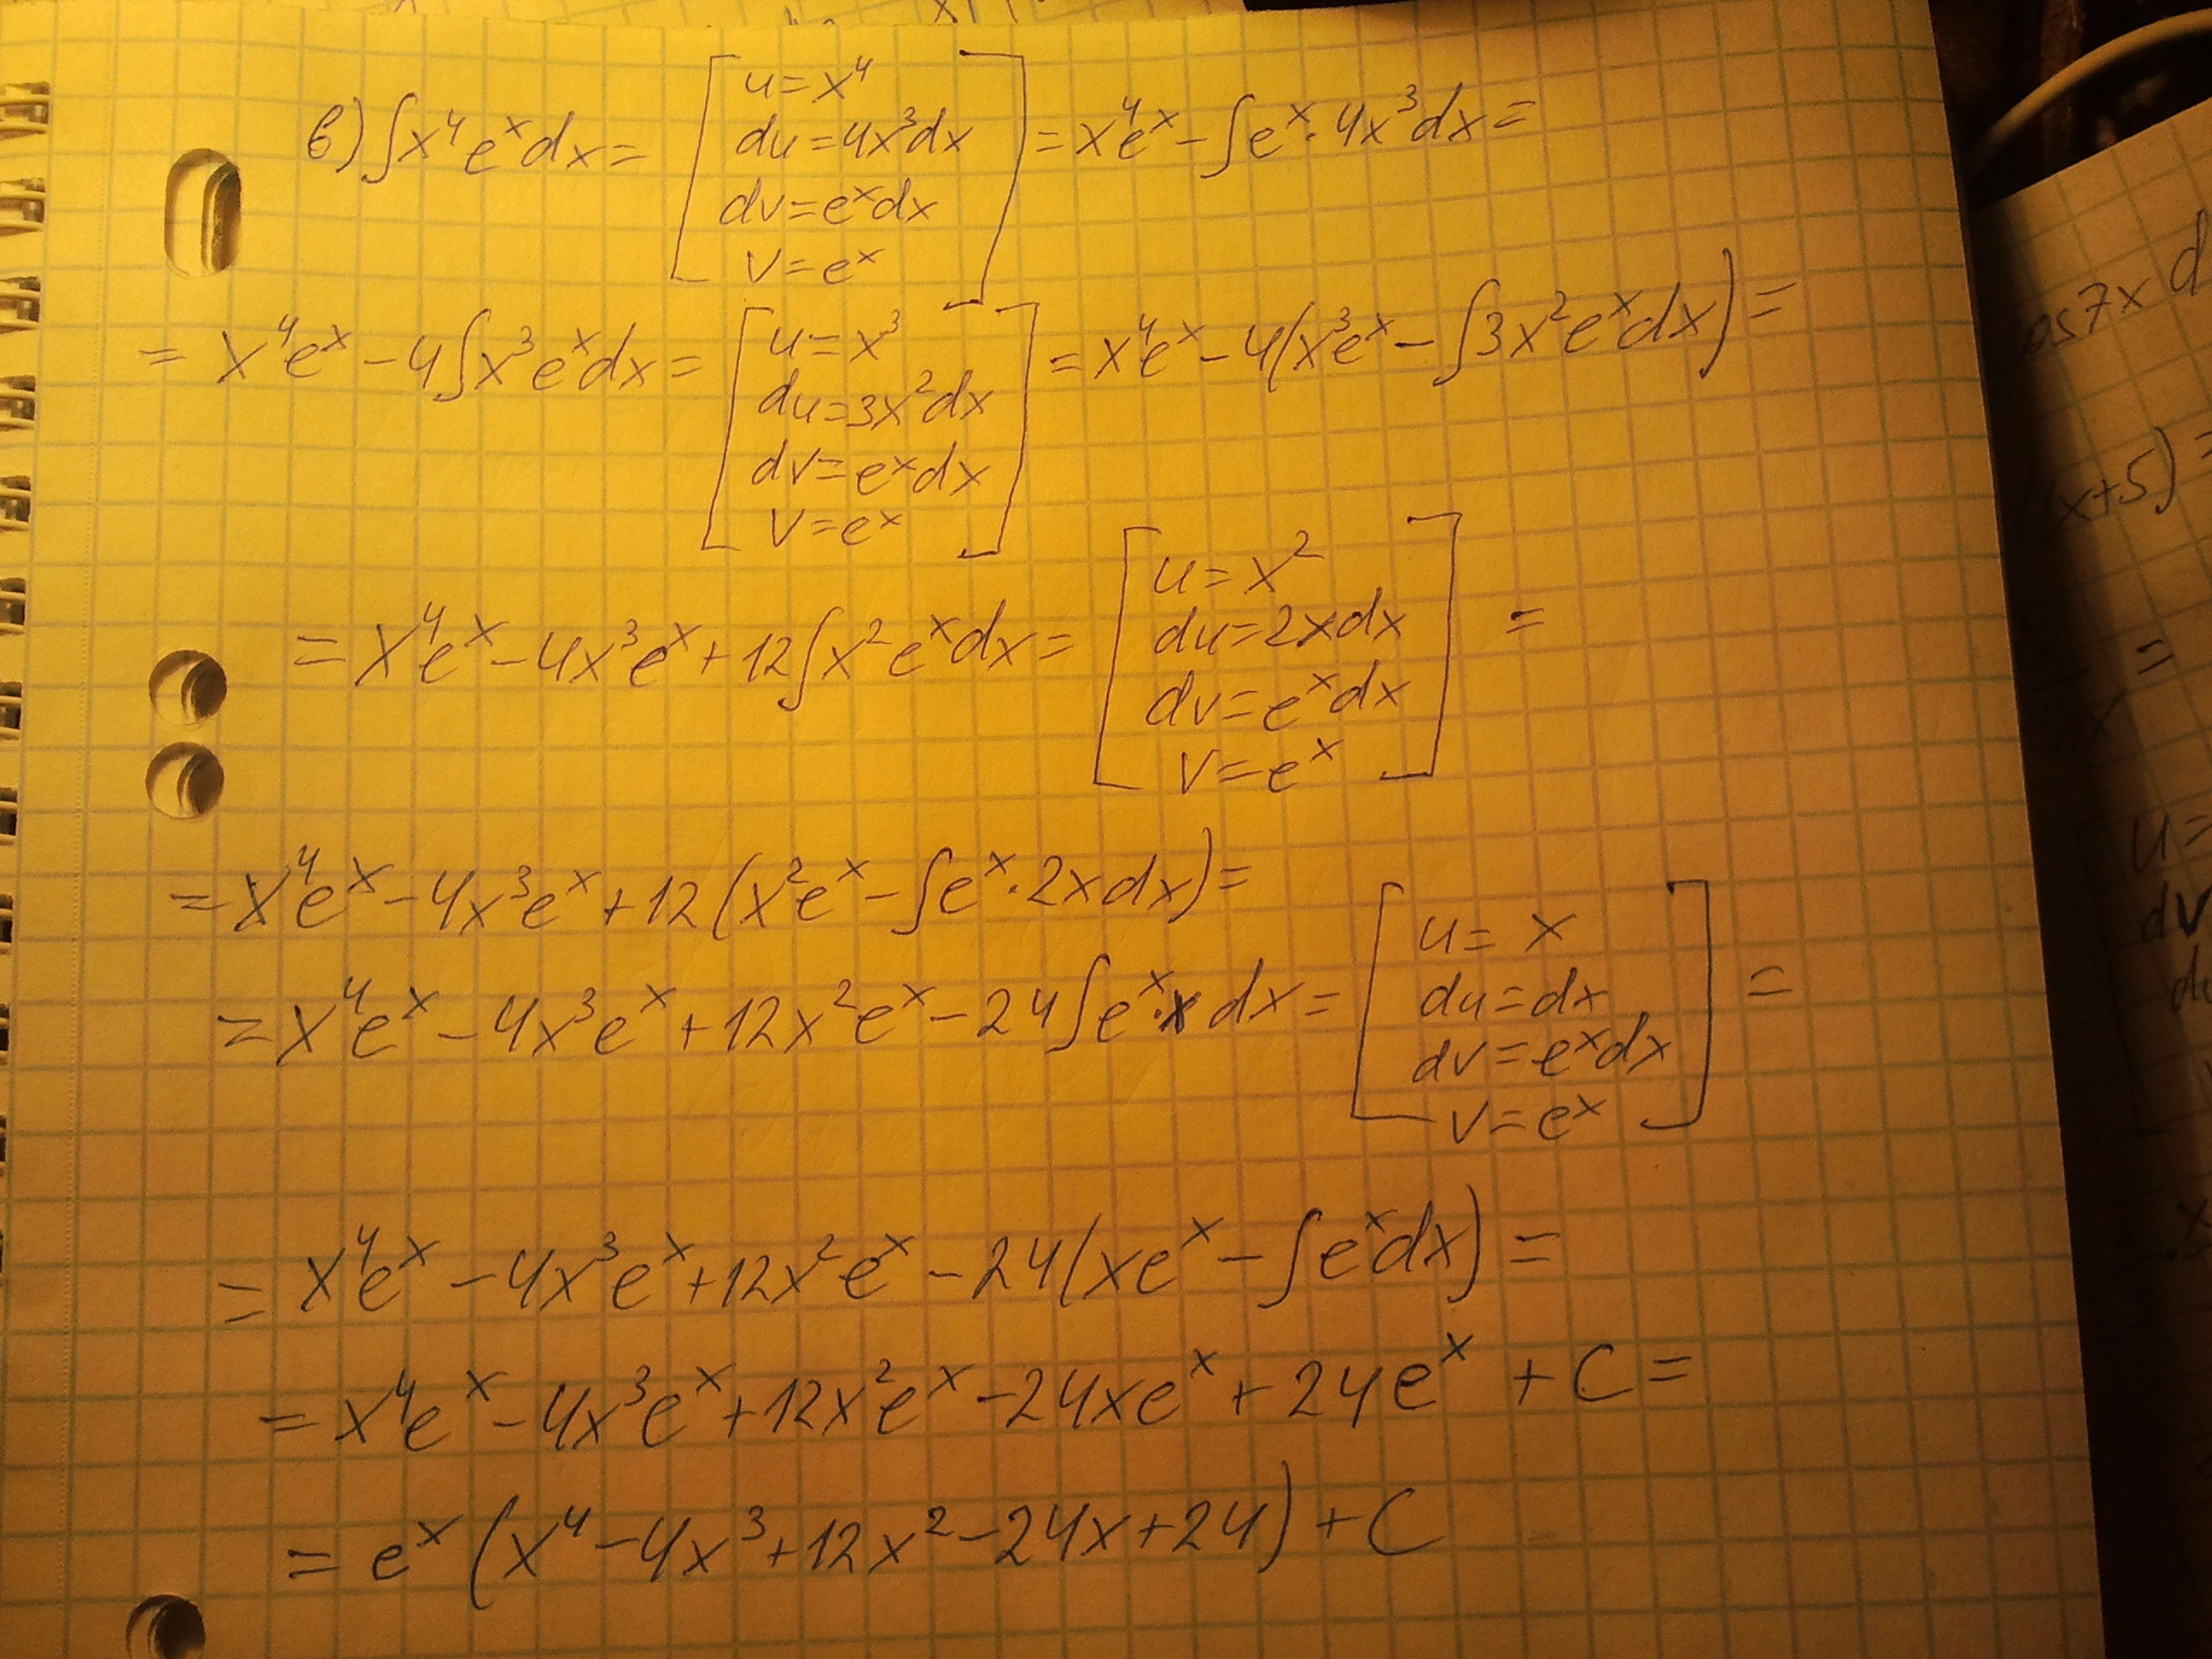 в) ∫x⁴eˣdx = [u=x⁴ du=4x³dx dv=eˣdx v=eˣ] = x⁴eˣ - ∫eˣ·4x³dx =
= x⁴eˣ - 4∫x³eˣdx = [u=x³ du=3x²dx dv=eˣdx v=eˣ] = x⁴eˣ - 4(x³eˣ - ∫3x²eˣdx) =
= x⁴eˣ - 4x³eˣ + 12∫x²eˣdx = [u=x² du=2xdx dv=eˣdx v=eˣ] =
= x⁴eˣ - 4x³eˣ + 12(x²eˣ - ∫eˣ·2xdx) =
= x⁴eˣ - 4x³eˣ + 12x²eˣ - 24∫eˣ·x dx = [u=x du=dx dv=eˣdx v=eˣ] =
= x⁴eˣ - 4x³eˣ + 12x²eˣ - 24(xeˣ - ∫eˣdx) =
= x⁴eˣ - 4x³eˣ + 12x²eˣ - 24xeˣ + 24eˣ + C =
= eˣ(x⁴ - 4x³ + 12x² - 24x + 24) + C
os7x d
(x+5) =
x =
u=
dv